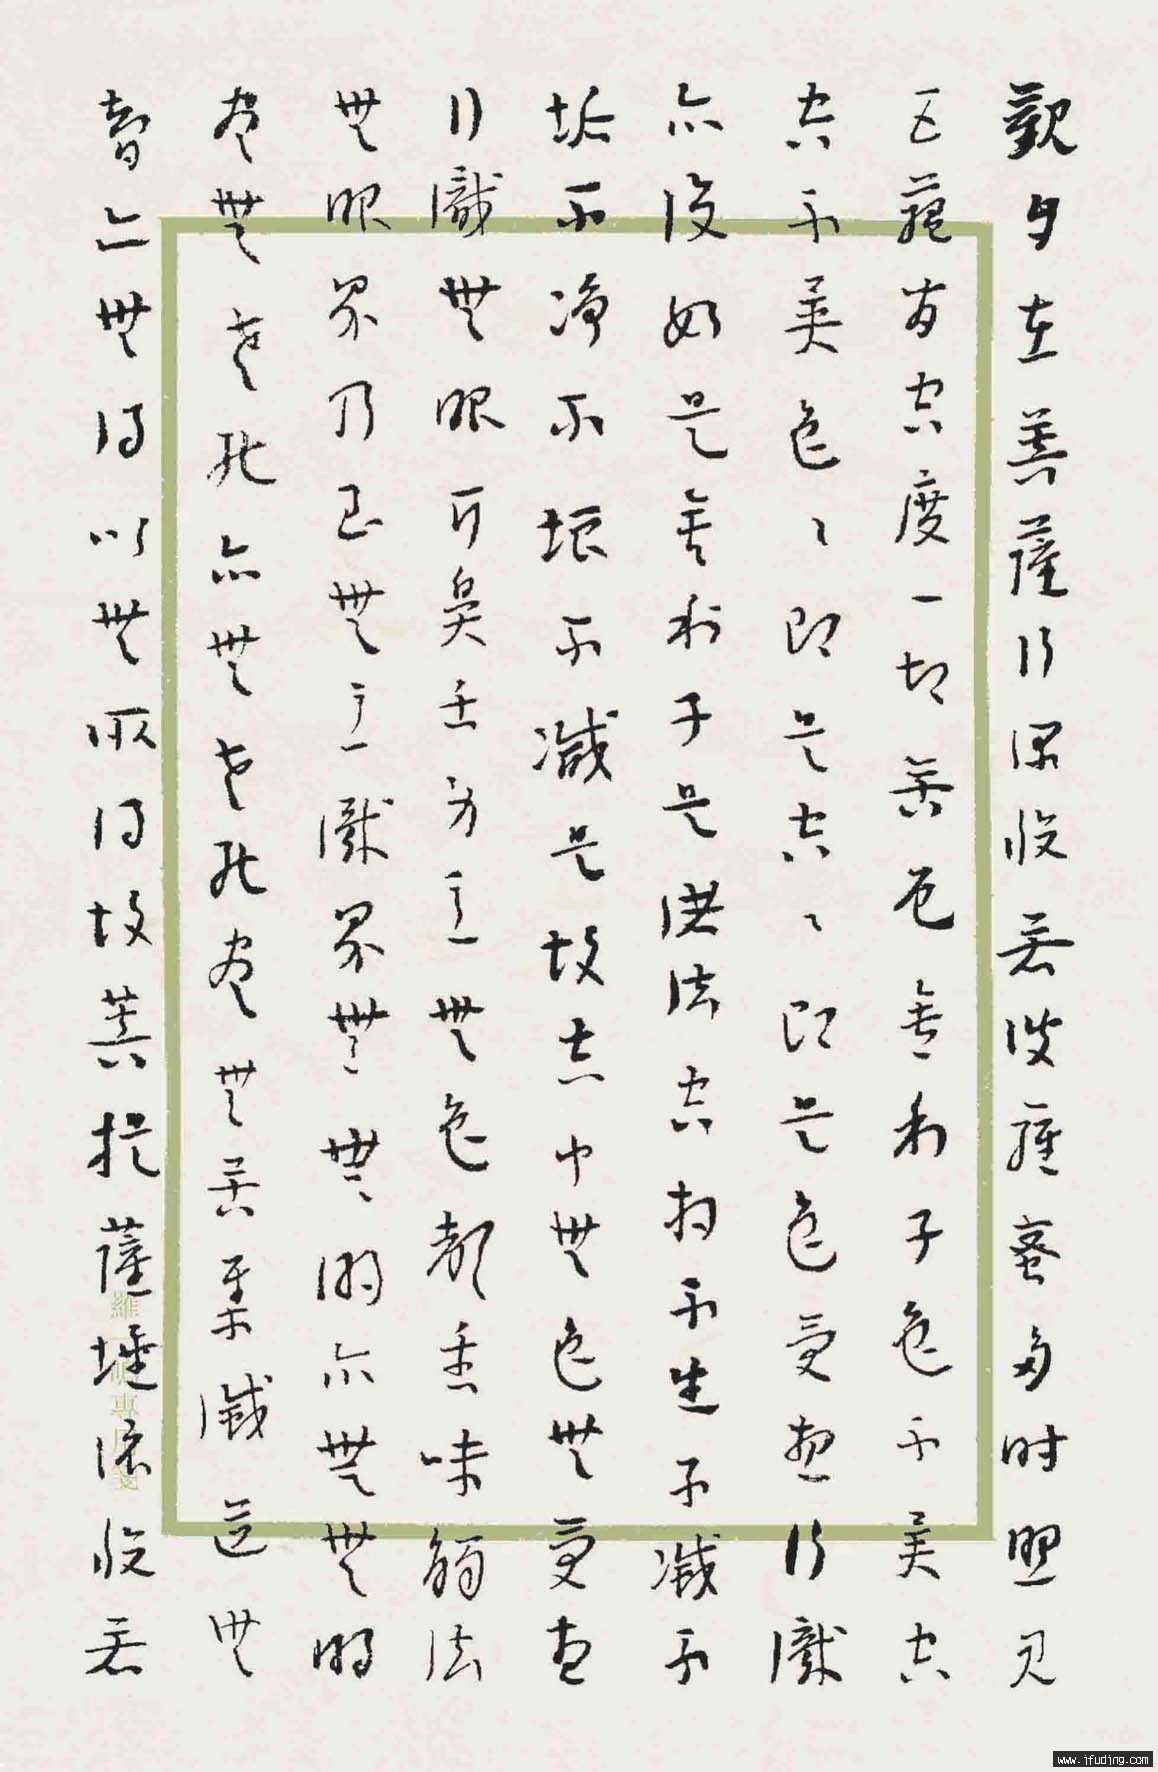 觀自在菩薩行深般若波羅蜜多時照見
五蘊皆空度一切苦厄舍利子色不異空
空不異色〻即是空〻即是色受想行識
亦復如是舍利子是諸法空相不生不滅不
垢不淨不增不減是故空中無色無受想
行識無眼耳鼻舌身意無色聲香味觸法
無眼界乃至無意識界無無明亦無無明
盡無老死亦無老死盡無苦集滅道無
智亦無得以無所得故菩提薩埵依般若
www.ifuding.com